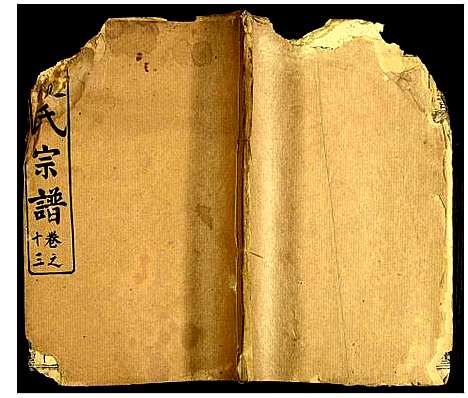 氏宗譜
卷之
十三